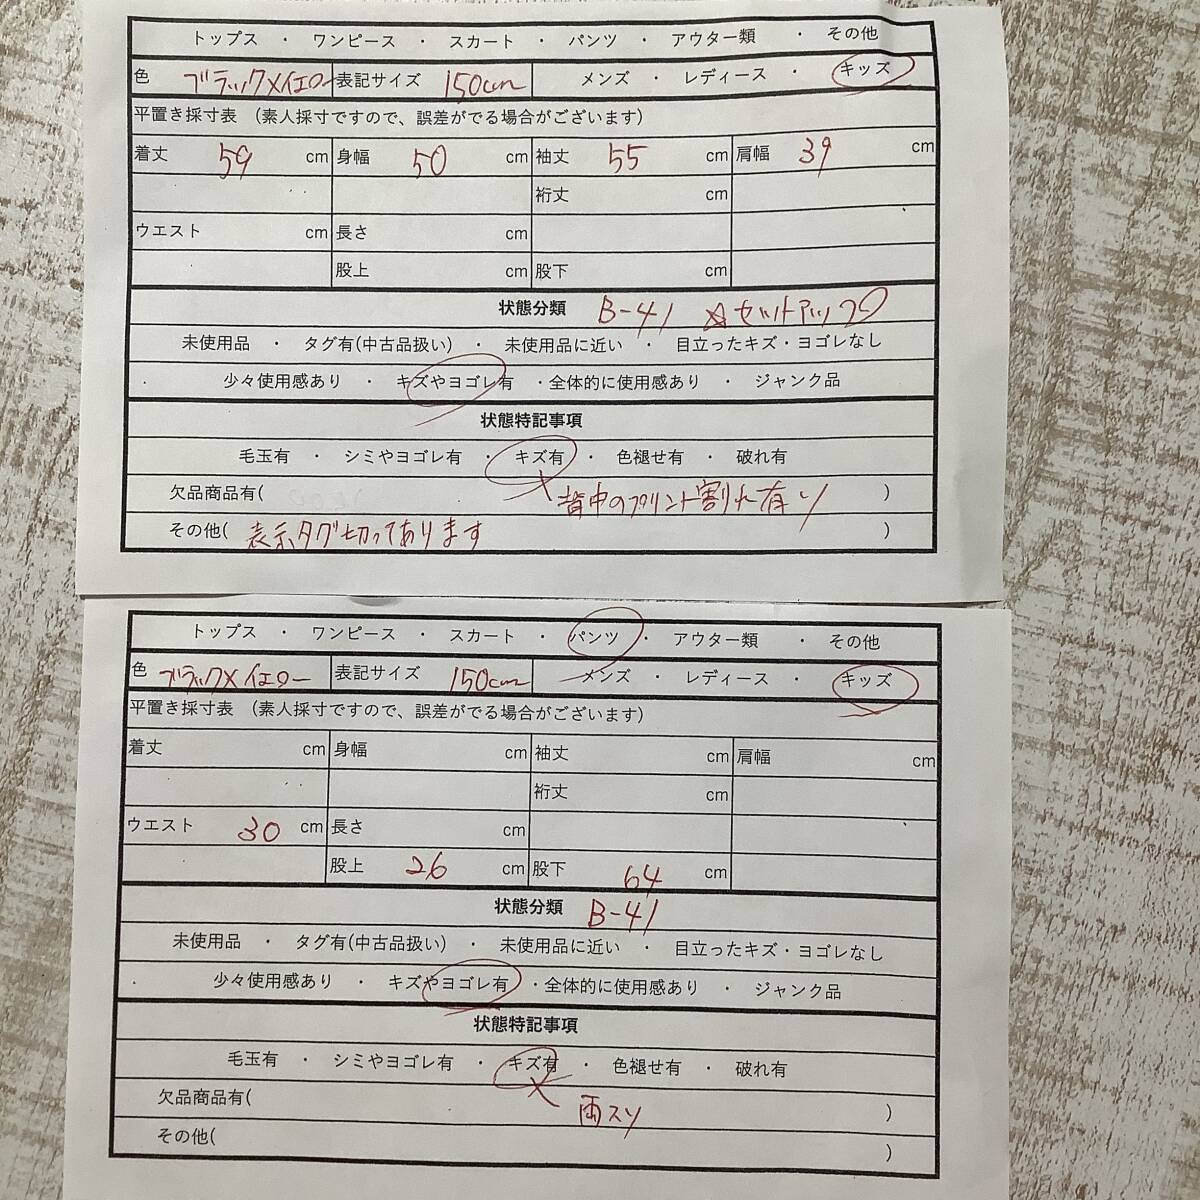 トップス ・ ワンピース ・ スカート ・ パンツ ・ アウター類 ・ その他
色 ブラック×イエロー 表記サイズ 150cm メンズ ・ レディース ・ キッズ
平置き採寸表 (素人採寸ですので、誤差がでる場合がございます)
着丈 59 cm 身幅 50 cm 袖丈 55 cm 肩幅 39 cm
裄丈 cm
ウエスト cm 長さ cm
股上 cm 股下 cm
状態分類 B-41 ☆セットアップ
未使用品 ・ タグ有(中古品扱い) ・ 未使用品に近い ・ 目立ったキズ・ヨゴレなし
少々使用感あり ・ キズやヨゴレ有 ・全体的に使用感あり ・ ジャンク品
状態特記事項
毛玉有 ・ シミやヨゴレ有 ・ キズ有 ・ 色褪せ有 ・ 破れ有
欠品商品有( 背中のプリント割れ有り )
その他( 表示タグ切ってあります )
トップス ・ ワンピース ・ スカート ・ パンツ ・ アウター類 ・ その他
色 ブラック×イエロー 表記サイズ 150cm メンズ ・ レディース ・ キッズ
平置き採寸表 (素人採寸ですので、誤差がでる場合がございます)
着丈 cm 身幅 cm 袖丈 cm 肩幅 cm
裄丈 cm
ウエスト 30 cm 長さ cm
股上 26 cm 股下 64 cm
状態分類 B-41
未使用品 ・ タグ有(中古品扱い) ・ 未使用品に近い ・ 目立ったキズ・ヨゴレなし
少々使用感あり ・ キズやヨゴレ有 ・全体的に使用感あり ・ ジャンク品
状態特記事項
毛玉有 ・ シミやヨゴレ有 ・ キズ有 ・ 色褪せ有 ・ 破れ有
欠品商品有( 両スソ )
その他( )